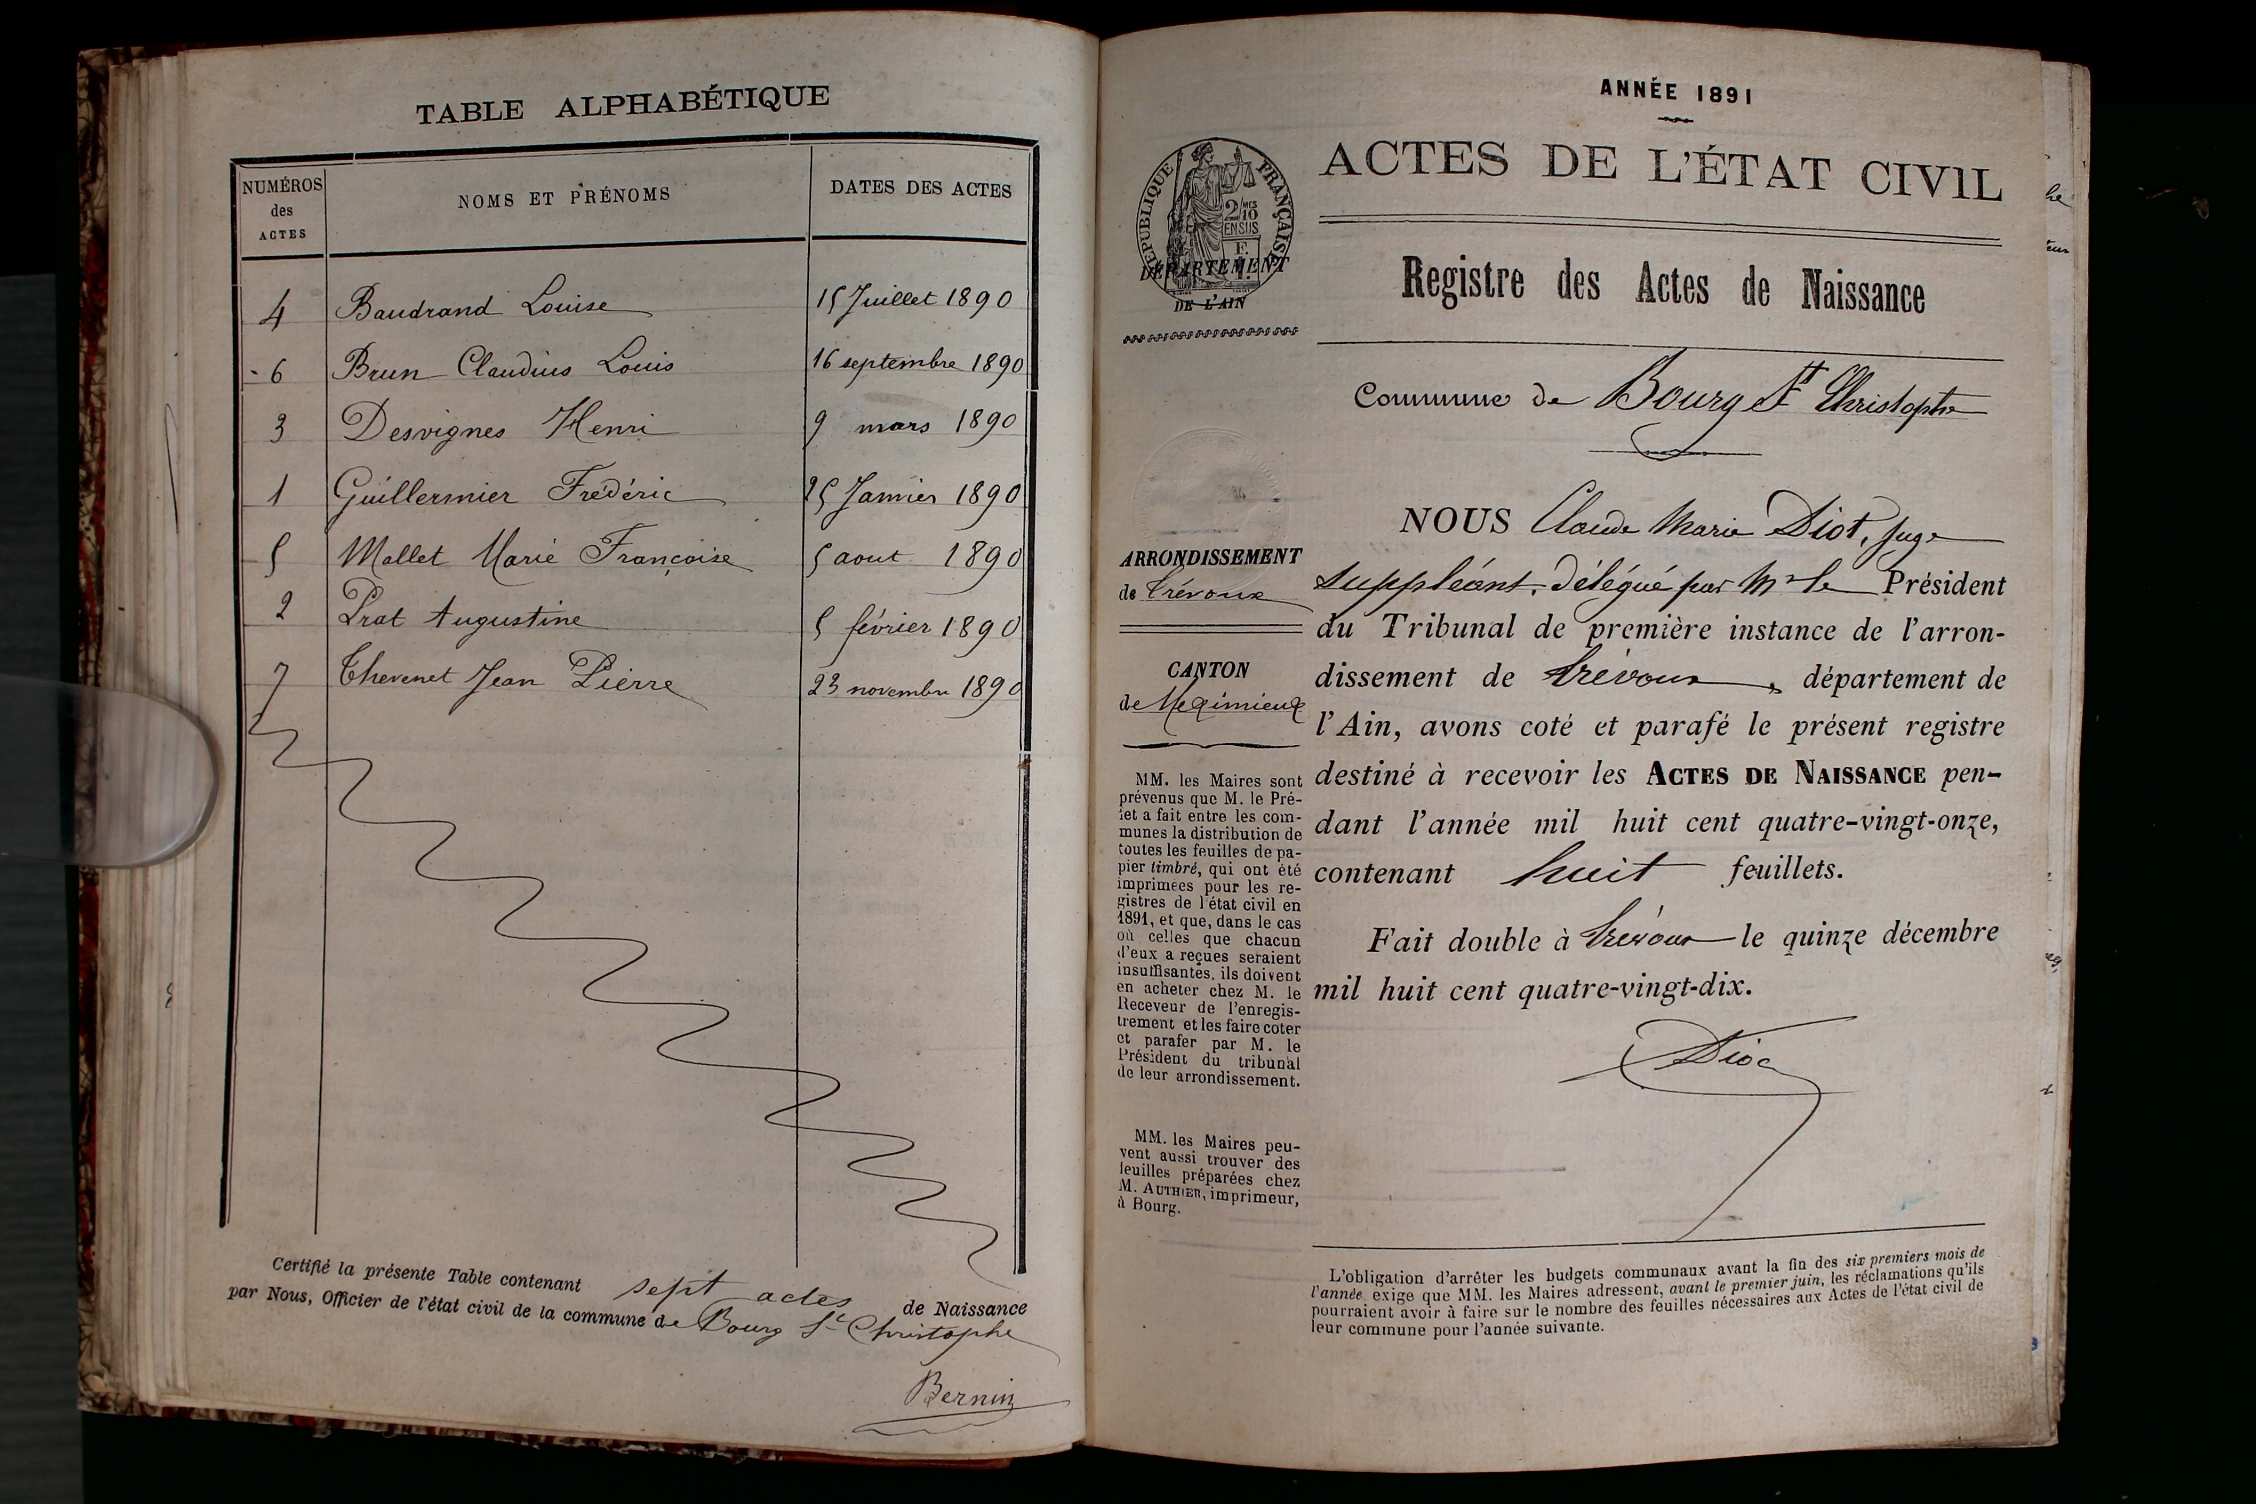 TABLE ALPHABÉTIQUE
NUMÉROS des ACTES
NOMS ET PRÉNOMS
DATES DES ACTES
4 Baudrand Louise 15 Juillet 1890
6 Brun Claudius Louis 16 septembre 1890
3 Desvignes Henri 9 mars 1890
1 Guillermier Frédéric 25 Janvier 1890
5 Mallet Marie Françoise 5 aout 1890
2 Prat Augustine 5 février 1890
7 Thevenet Jean Pierre 23 novembre 1890
Certifié la présente Table contenant sept actes de Naissance
par Nous, Officier de l'état civil de la commune de Bourg St Christophe
Bernin
ANNÉE 1891
ACTES DE L'ÉTAT CIVIL
Registre des Actes de Naissance
Commune de Bourg St Christophe
NOUS Claude Marie Diot, Juge
suppléant, délégué par Mr le Président
du Tribunal de première instance de l'arron-
dissement de Trévoux, département de
l'Ain, avons coté et parafé le présent registre
destiné à recevoir les ACTES DE NAISSANCE pen-
dant l'année mil huit cent quatre-vingt-onze,
contenant huit feuillets.
Fait double à Trévoux le quinze décembre
mil huit cent quatre-vingt-dix.
Diot
L'obligation d'arrêter les budgets communaux avant la fin des six premiers mois de
l'année exige que MM. les Maires adressent, avant le premier juin, les réclamations qu'ils
pourraient avoir à faire sur le nombre des feuilles nécessaires aux Actes de l'état civil de
leur commune pour l'année suivante.
RÉPUBLIQUE FRANÇAISE
2/10 MES
EN SUS
DÉPARTEMENT
DE L'AIN
ARRONDISSEMENT
de Trévoux
CANTON
de Meximieux
MM. les Maires sont
prévenus que M. le Pré-
fet a fait entre les com-
munes la distribution de
toutes les feuilles de pa-
pier timbré, qui ont été
imprimées pour les re-
gistres de l'état civil en
1891, et que, dans le cas
où celles que chacun
d'eux a reçues seraient
insuffisantes, ils doivent
en acheter chez M. le
Receveur de l'enregis-
trement et les faire coter
et parafer par M. le
Président du tribunal
de leur arrondissement.
MM. les Maires peu-
vent aussi trouver des
feuilles préparées chez
M. AUTHIER, imprimeur,
à Bourg.